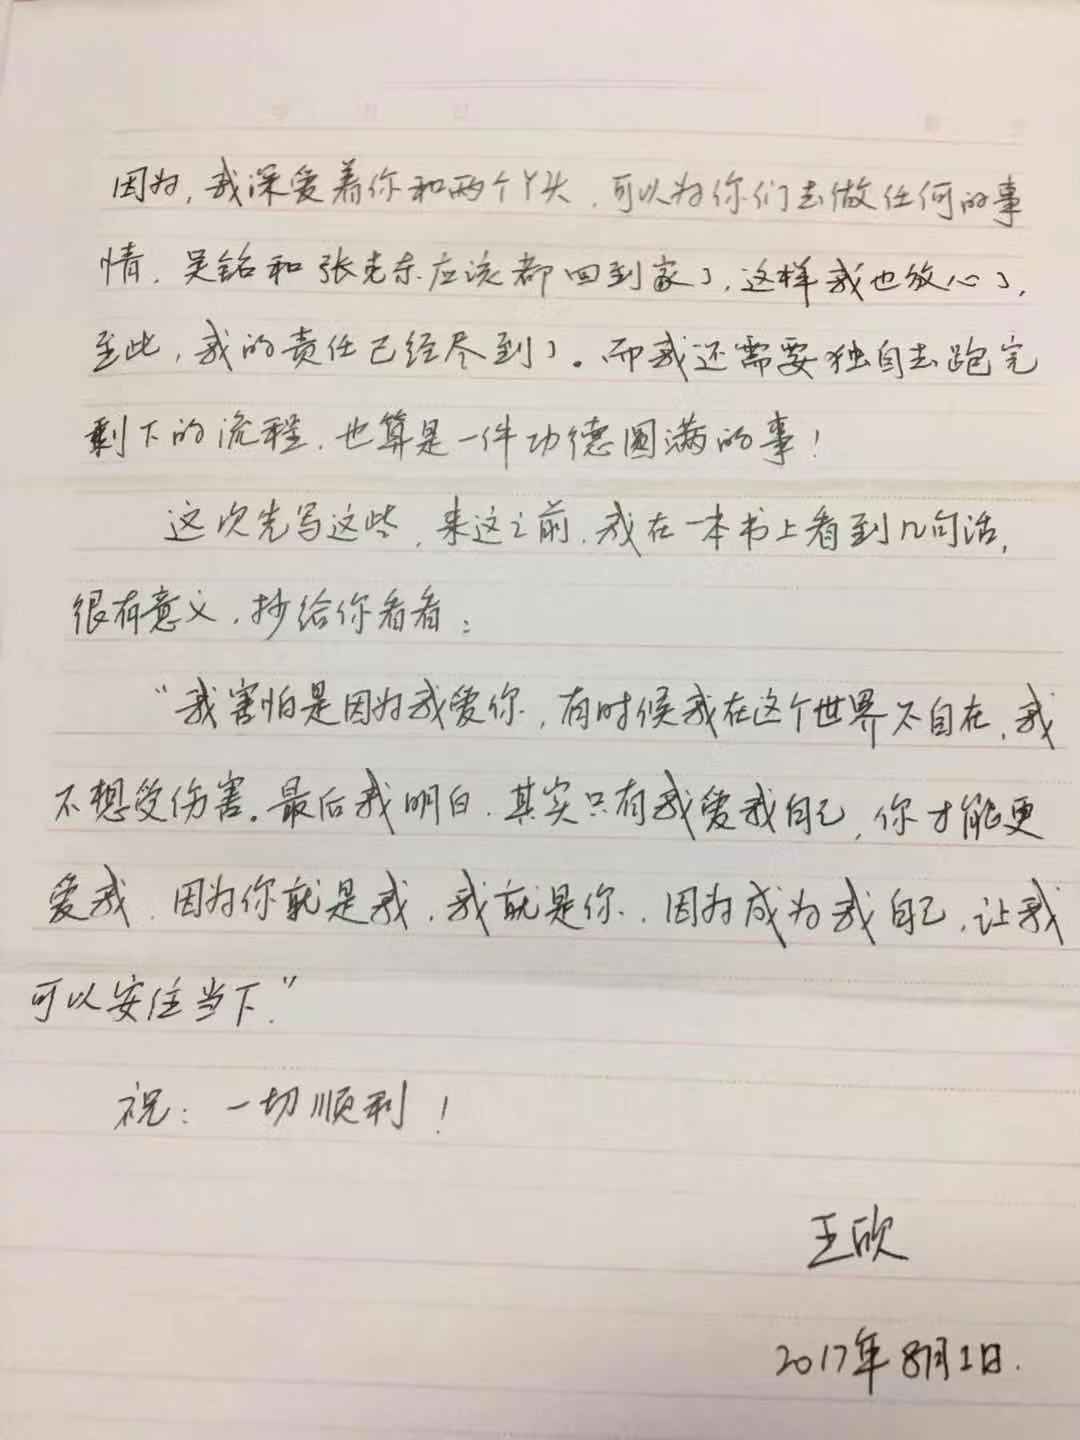 因为,我深爱着你和两个丫头,可以为你们去做任何的事
情,吴铭和张克东应该都回到家了,这样我也放心了,
至此,我的责任已经尽到了。而我还需要独自去跑完
剩下的流程,也算是一件功德圆满的事!
这次先写这些,来这之前,我在一本书上看到几句话,
很有意义,抄给你看看:
"我害怕是因为我爱你,有时候我在这个世界不自在,我
不想受伤害。最后我明白,其实只有我爱我自己,你才能更
爱我,因为你就是我,我就是你,因为成为我自己,让我
可以安住当下."
祝:一切顺利!
王欣
2017年8月1日.